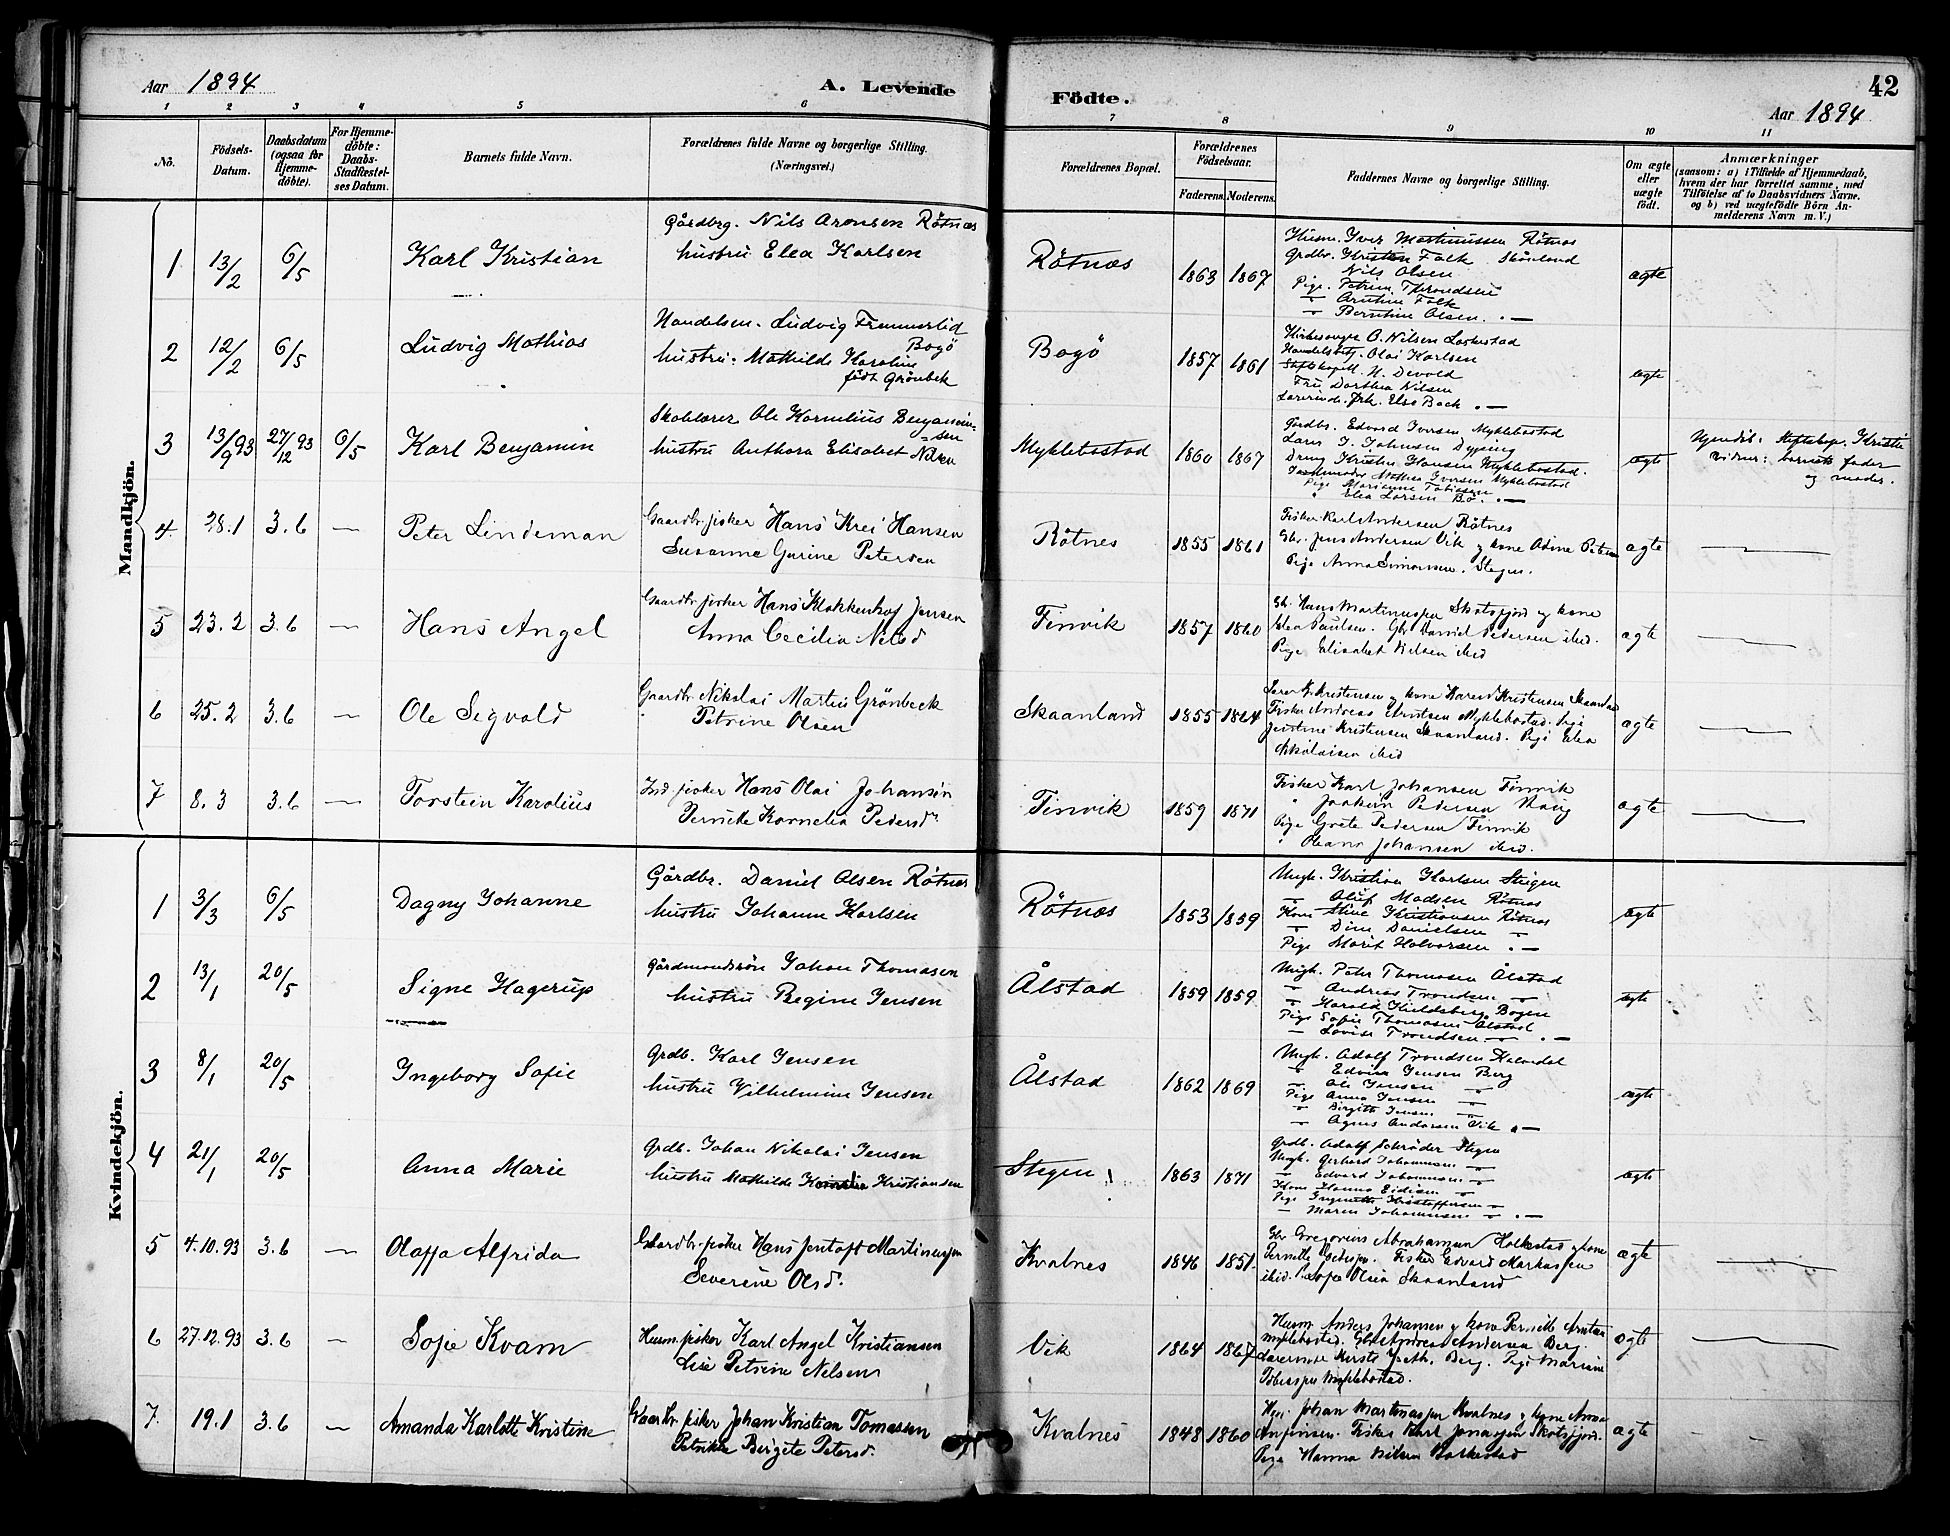 Aar 1894
A. Levende
Födte.
42
Aar 1894
1 2 3 4 5 6 7 8 9 10 11
No.
Födsels-Datum.
Daabsdatum (ogsaa for Hjemme-döbte).
For Hjemme-döbte: Daabs-Stadfæstel-ses Datum.
Barnets fulde Navn.
Forældrenes fulde Navne og borgerlige Stilling. (Næringsvei.)
Forældrenes Bopæl.
Forældrenes Födselsaar.
Faderens. Moderens.
Faddernes Navne og borgerlige Stilling.
Om ægte eller uægte födt.
Anmærkninger
(saasom: a) i Tilfælde af Hjemmedaab,
hvem der har forrettet samme, med
Tilföielse af to Daabsvidners Navne.
og b) ved uægtefödte Börn An-
melderens Navn m. V.)
Mandkjön.
1 13/2 6/5 Karl Kristian
Gårdbrg. Nils Aronsen Rötnæs
hustru Elea Karlsen
Rötnæs 1863 1867
Husm. Iver Martinussen Rötnæs
Grdbr. Kristen Falk Skånland
Nils Olsen
Pige. Petrine Throndsen
Falk
Berntine Olsen
ægte
2 12/2 6/5 Ludvig Mathias
Handelsm. Ludvig Fremmerlid
Bogö
hustru. Mathilde Karoline
födt Grönbek
Bogö 1857 1861
O. Nilsen
Olai Karlsen
H. Devold
Fru Dorthea Nilsen
Lærerinde. Frk. Else Back
ægte
3 13/9 93 27/12 93 6/5 Karl Benjamin
Skolelærer Ole Kornelius Benjamin-
sen
hustru Anthora Elisabet Nilsen
Myklebostad 1860 1867
Edvard Iversen Myklebostad
Lærer J. Johnsen
Dreng Kristen Hansen Myklebostad.
Mathea Iversen Myklebostad
Pige Marianne Tobiassen
" Elea Larsen Bö.
ægte
Kristin
vidner: barnets fader
og moder.
4 28.1 3.6 — Peter Lindeman
Gaardbr. fisker Hans Krei Hansen
Susanna Gurine Petersen
Rötnes 1855 1861
Fisker Karl Andersen Rötnes
Gbr. Jens Andersen Vik og kone
Pige Anna Simonsen. Stegen.
ægte
5 23.2 3.6 — Hans Angel
Gaardbr. fisker Hans Klokkenhof Jensen
Anna Cecilia Nelsd
Finvik 1857 1860
Gb. Hans Martinussen Skotsfjord og kone
Elea Paulsen. Gbr. Daniel Pedersen ibid.
Pige Elisabet Nilsen ibid
ægte
6 25.2 3.6 — Ole Sigvald
Gaardbr. Nikolai Martin Grönbeck
Petrine Olsen
Skaanland 1855 1864
Kristensen og kone Karen Kristensen Skaanland
Fisker Andreas Myklebostad. Pige
Justine Kristensen Skaanland. Pige Elea
Nikolaisen ibid
ægte
7 8.3 3.6 — Torstein Karolius
Ind. fisker Hans Olai Johansen
Pernille Kornelia Pedersd.
Finvik 1859 1871
Fisker Karl Johansen Finvik
" Joakim Pedersen Haug
Pige Grete Pedersen Finvik
" Oleana Johansen ibid.
ægte
Kvindekjön.
1 3/3 6/5 Dagny Johanne
Gårdbr. Daniel Olsen Rötnæs
hustru Johanne Karlsen
Rötnæs 1853 1859
Ungk. Kristian Karlsen Stegen
Oluf Madsen Rötnæs
Kone Stine Kristiansen Rötnæs
Dina Danielsen
Pige Marit Halvorsen
ægte
2 13/1 20/5 Signe Hagerup
Gårdmandssön Johan Thomasen
hustru Regine Jensen
Ålstad 1859 1859
Ungk. Peter Thomasen Ålstad
Andreas Trondsen
Harald Kieldsberg Bogen
Pige Sofie Thomasen Ålstad
Lovise Trondsen
ægte
3 8/1 20/5 Ingeborg Sofie
Grdb. Karl Jensen
hustru Vilhelmine Jensen
Ålstad 1862 1869
Ungk. Adolf Trondsen
Edvin Jensen Berg
Ole Jensen
Pige Anna Jensen
Birgitte Jensen
Agnes Andersen Vik
ægte
4 21/1 20/5 Anna Marie
Grdb. Johan Nikolai Jensen
hustru Mathilde Kornelia Kristiansen
Stegen 1863 1871
Grdb. Adolf Schröder Stegen
Ungk. Gerhard Johannesen
Edvard Johannesen
Kone Hanna Eidisen
Pige Kristoffersen
Maren Johannesen
ægte
5 4.10.93 3.6 — Olaffa Alfrida
Gaardbr. fisker Hans Jentoft Martinussen
Severine Olsd.
Kvalnes 1846 1851.
Gbr. Gregorius Abrahamsen Holkestad og kone
Pernille Fisker Edvard Markussen
ibid. Olsen Skaanland
ægte
6 27.12.93 3.6 — Sofie Kvam
Husm. fisker Karl Angel Kristiansen
Lise Petrine Nelsen
Vik 1864 1867
Husm Anders Johansen og kone Pernille
Myklebostad. Gbr. Andreas Andersen Berg.
Berg. Pige Mariane
Tobiassen Myklebostad.
ægte
7. 19.1 3.6 — Amanda Karlotte Kristine
Gaardbr. fisker Johan Kristian Tomassen
Petrikke Birgite Petersd.
Kvalnes 1848 1860
Johan Martinussen Kvalnes og kone Anna
Fisker Karl Jonassen Skotsfjord.
Pige Hanna Nilsen Holkestad
ægte